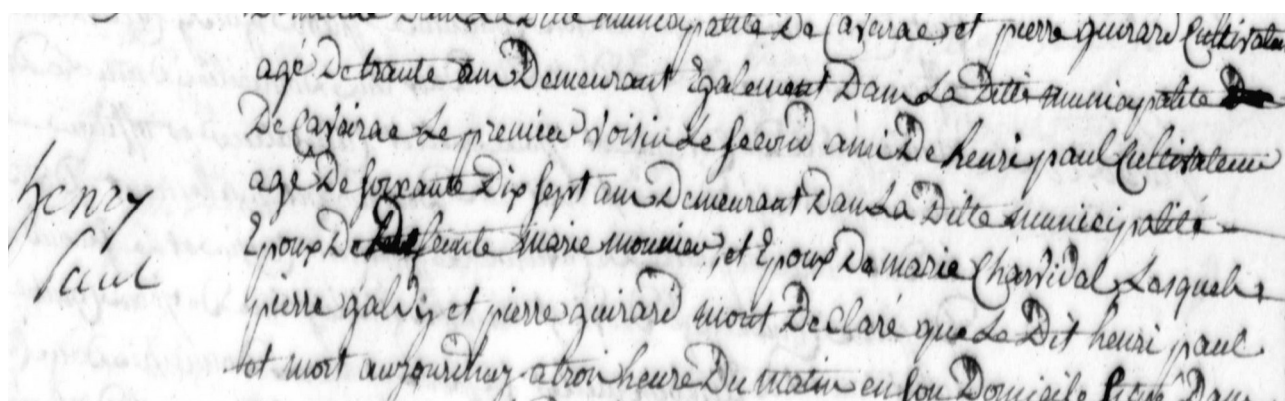 dans la Ditte municipalité De Caveirac et pierre guirard Cultivateur
agé De trante ans Demeurant Egalement Dans La Ditte municipalité
De Caveirac Le premier voisin Le second ami De henri paul Cultivateur
agé De soixante Dix sept ans Demeurant Dans La Ditte municipalité
Henry
Paul
Epoux De feue marie mounier, et Epoux De marie Lesquels
pierre et pierre guirard mont Declaré que Le Dit henri paul
est mort aujourdhuy a trois heure Du matin en son Domicile situé Dans